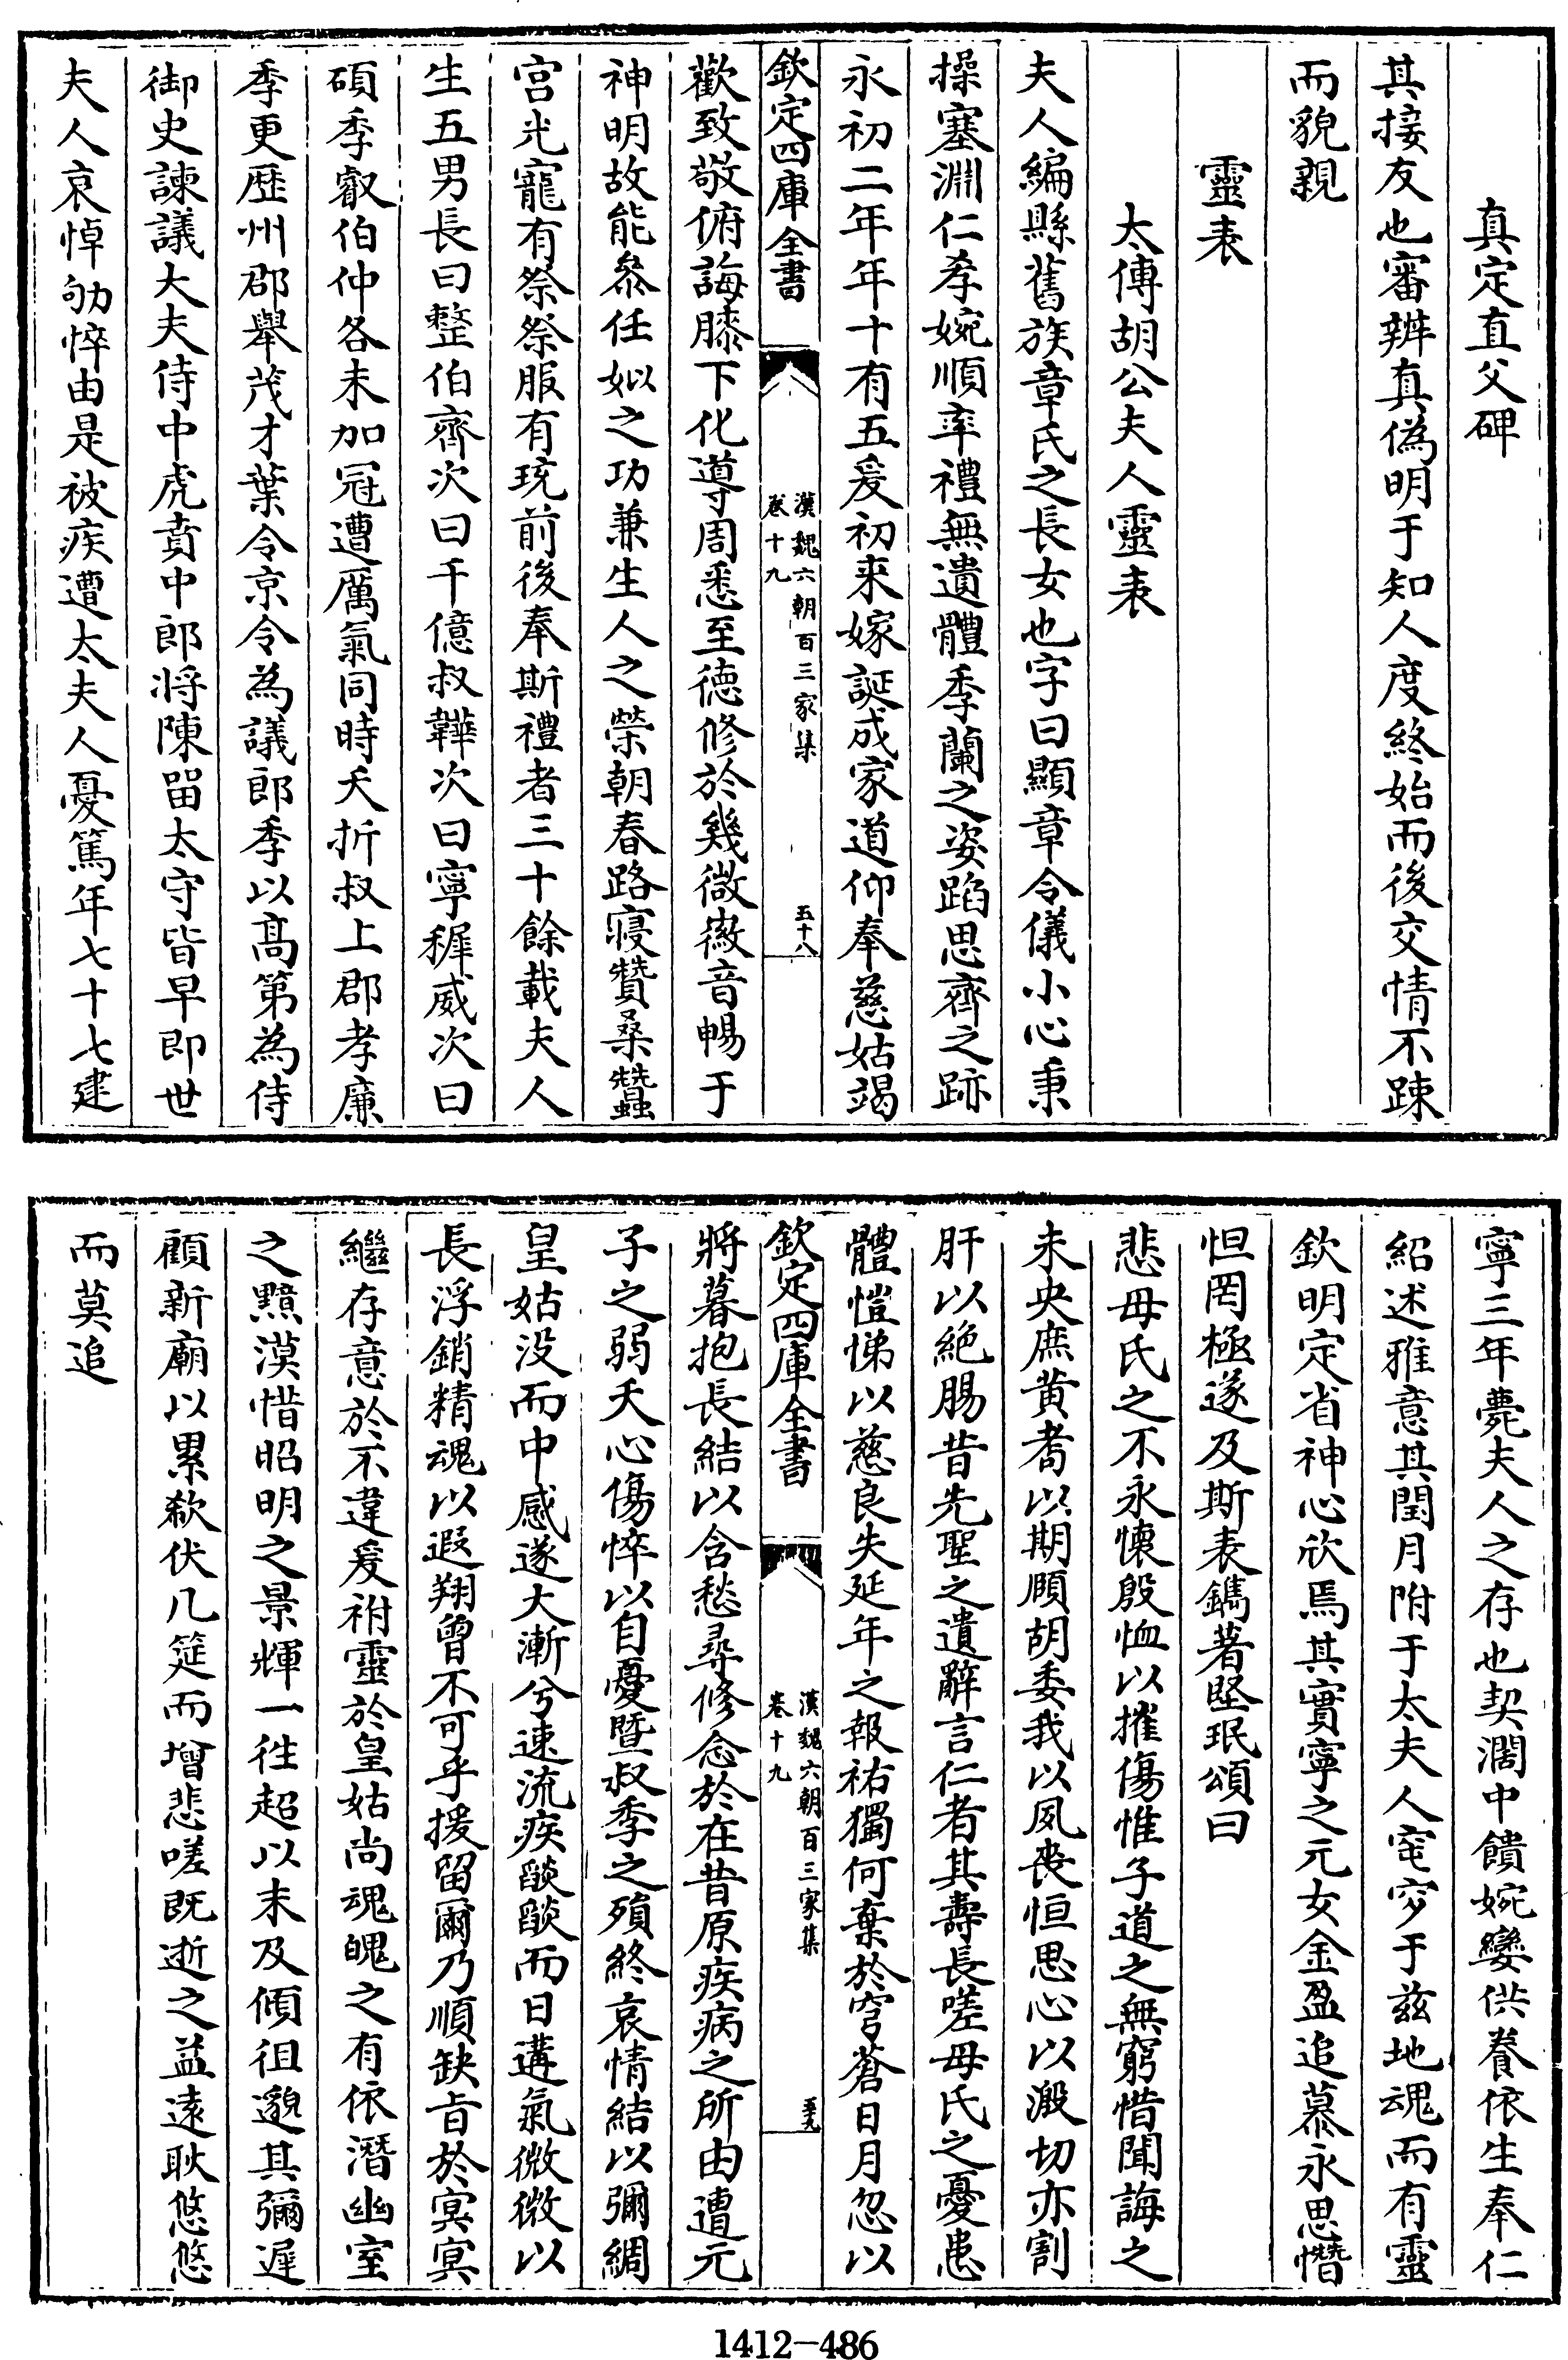 真定直父碑
其接友也審辨真偽明于知人度終始而後交情不踈
而貌親
靈表
太傅胡公夫人靈表
夫人編縣舊族章氏之長女也字曰顯章令儀小心秉
操塞淵仁孝婉順率禮無遺體季蘭之姿蹈思齊之跡
永初二年年十有五爰初来嫁誕成家道仰奉慈姑竭
欽定四庫全書
漢魏六朝百三家集
卷十九
五十八
歡致敬俯誨膝下化導周悉至徳修於幾微徽音暢于
神明故能叅任姒之功兼生人之榮朝春路寢贊桑蠶
宫光寵有祭祭服有珫前後奉斯禮者三十餘載夫人
生五男長曰整伯齊次曰千億叔韡次曰寧穉威次曰
碩季叡伯仲各未加冠遭厲氣同時夭折叔上郡孝廉
季更歴州郡舉茂才葉令京令為議郎季以髙第為侍
御史諫議大夫侍中虎賁中郎將陳留太守皆早即世
夫人哀悼劬悴由是被疾遭太夫人憂篤年七十七建
寧三年薨夫人之存也契濶中饋婉孌供養依生奉仁
紹述雅意其閏月附于太夫人窀穸于兹地魂而有靈
欽明定省神心欣焉其實寧之元女金盈追慕永思憯
怛罔極遂及斯表鐫著堅珉頌曰
悲母氏之不永懐殷恤以摧傷惟子道之無窮惜聞誨之
未央庶黄耈以期頤胡委我以夙喪恒思心以激切亦割
肝以絶腸昔先聖之遺辭言仁者其壽長嗟母氏之憂患
體愷悌以慈良失延年之報祐獨何棄於穹蒼日月忽以
欽定四庫全書
漢魏六朝百三家集
卷十九
五十九
將暮抱長結以含愁尋修念於在昔原疾病之所由遭元
子之弱夭心傷悴以自憂暨叔季之殞終哀情結以彌綢
皇姑没而中感遂大漸兮速流疾燄燄而日遘氣微微以
長浮銷精魂以遐翔曾不可乎援留爾乃順缺㫖於冥冥
繼存意於不違爰祔靈於皇姑尚魂魄之有依潛幽室
之黯漠惜昭明之景輝一徃超以未及傾徂邈其彌遲
顧新廟以累欷伏几筵而增悲嗟既逝之益逺耿悠悠
而莫追
1412-486